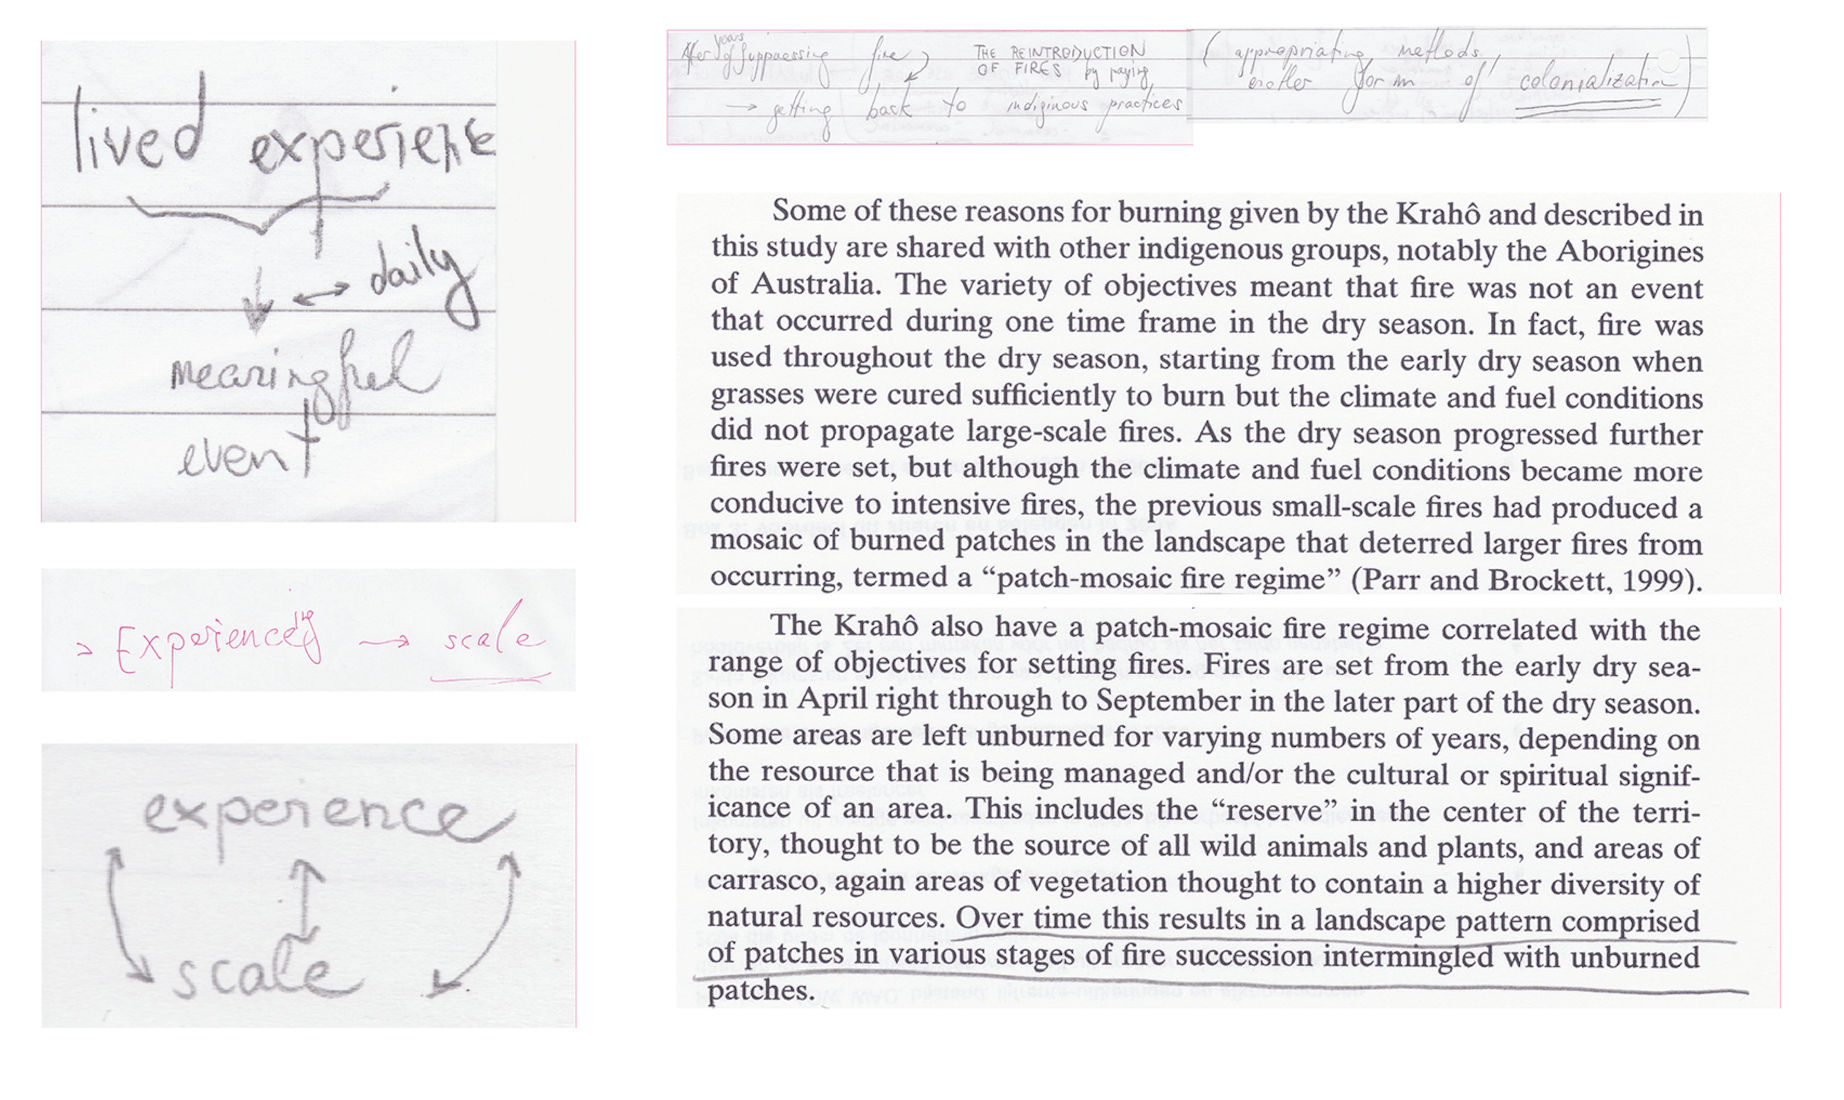 lived experience
daily
meaningful
event
> Experiencing → scale
experience
scale
After years of suppraessing fire
THE REINTRODUCTION
OF FIRES by paying
→ getting back to indiginous practices
( appropriating methods
another form of colonialization )
Some of these reasons for burning given by the Krahô and described in
this study are shared with other indigenous groups, notably the Aborigines
of Australia. The variety of objectives meant that fire was not an event
that occurred during one time frame in the dry season. In fact, fire was
used throughout the dry season, starting from the early dry season when
grasses were cured sufficiently to burn but the climate and fuel conditions
did not propagate large-scale fires. As the dry season progressed further
fires were set, but although the climate and fuel conditions became more
conducive to intensive fires, the previous small-scale fires had produced a
mosaic of burned patches in the landscape that deterred larger fires from
occurring, termed a “patch-mosaic fire regime” (Parr and Brockett, 1999).
The Krahô also have a patch-mosaic fire regime correlated with the
range of objectives for setting fires. Fires are set from the early dry sea-
son in April right through to September in the later part of the dry season.
Some areas are left unburned for varying numbers of years, depending on
the resource that is being managed and/or the cultural or spiritual signif-
icance of an area. This includes the “reserve” in the center of the terri-
tory, thought to be the source of all wild animals and plants, and areas of
carrasco, again areas of vegetation thought to contain a higher diversity of
natural resources. Over time this results in a landscape pattern comprised
of patches in various stages of fire succession intermingled with unburned
patches.